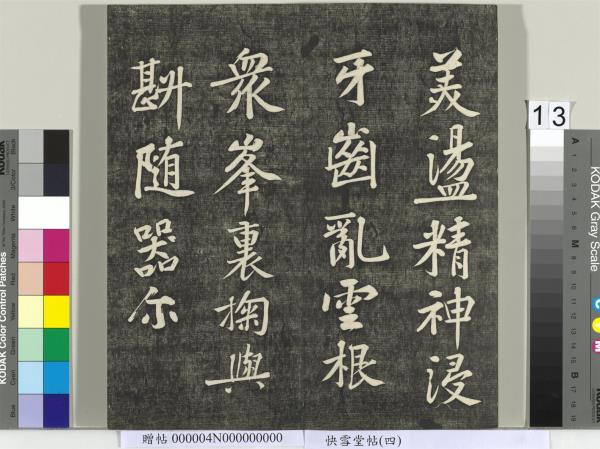 美盪精神浸
牙齒亂雲根
衆峯裏掬與
斟随器尔
13
KODAK Color Control Patches
Blue
Cyan
Green
Yellow
Red
Magenta
White
3/Color
Black
KODAK Gray Scale
A 1 2 3 4 5 6 M 8 9 10 11 12 13 14 15 B 17 18 19
C
Y
M
贈帖 000004N000000000
快雪堂帖(四)